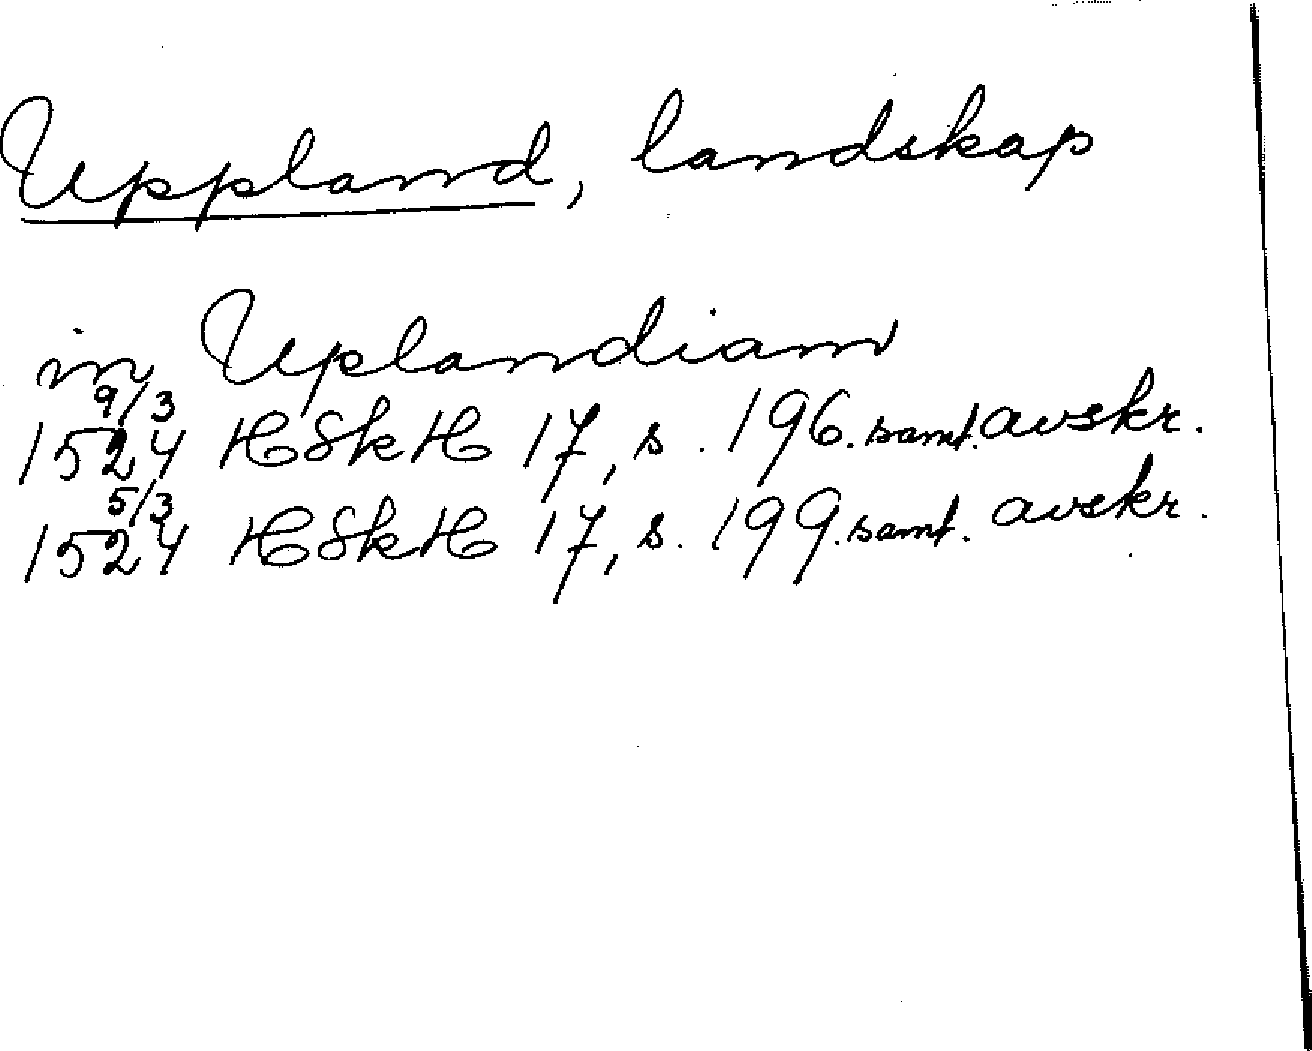 Uppland, landskap
in Uplandiam
9/3
1524 HSkH 17, s. 196. samt. avskr.
5/3
1524 HSkH 17, s. 199. samt. avskr.